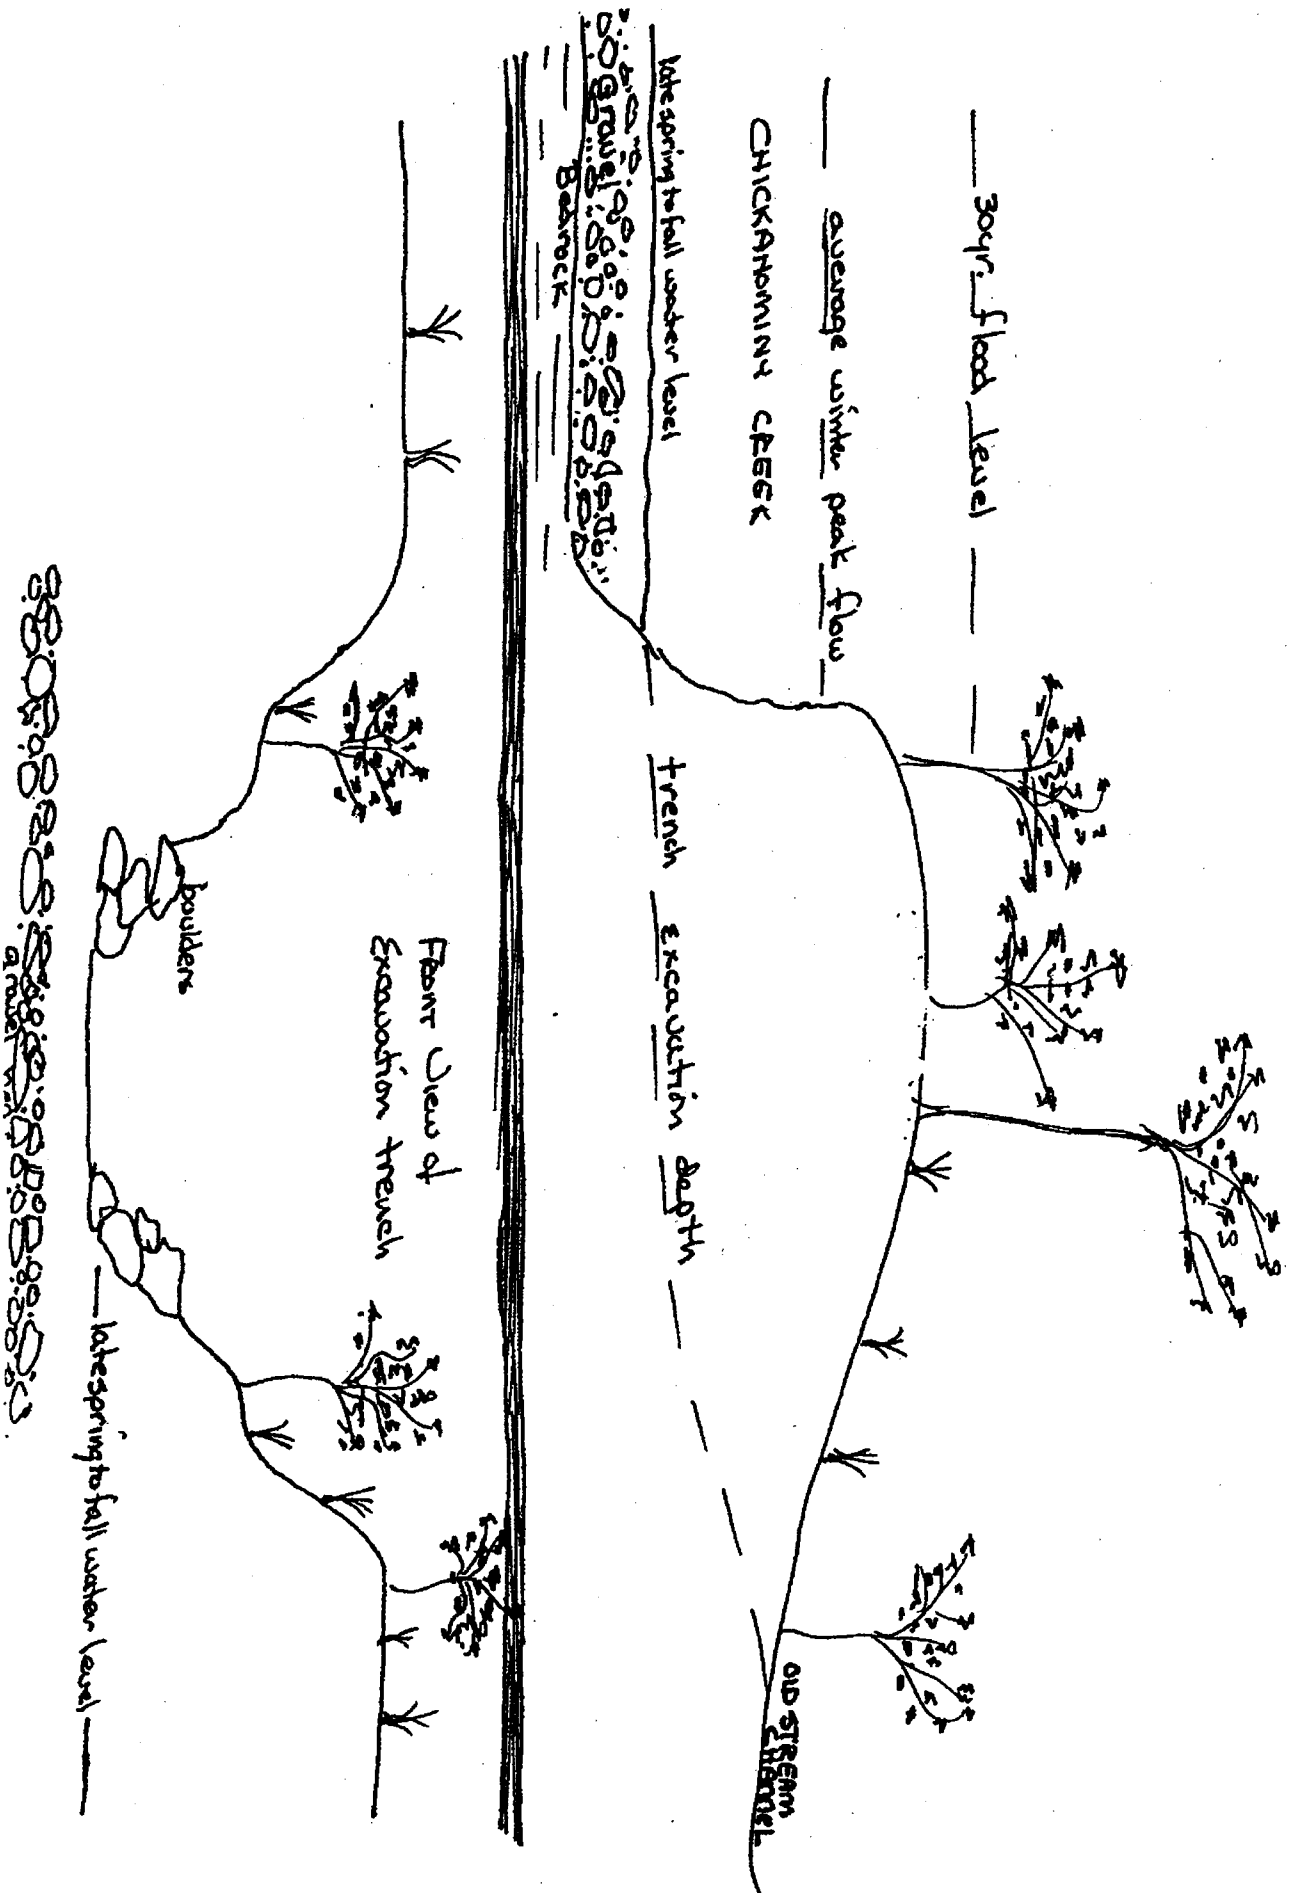 30yr. flood level
average winter peak flow
CHICKAHOMINY CREEK
late spring to fall water level
Gravel
Bedrock
trench excavation depth
OLD STREAM
CHANNEL
Front View of
Excavation trench
boulders
late spring to fall water level
gravel